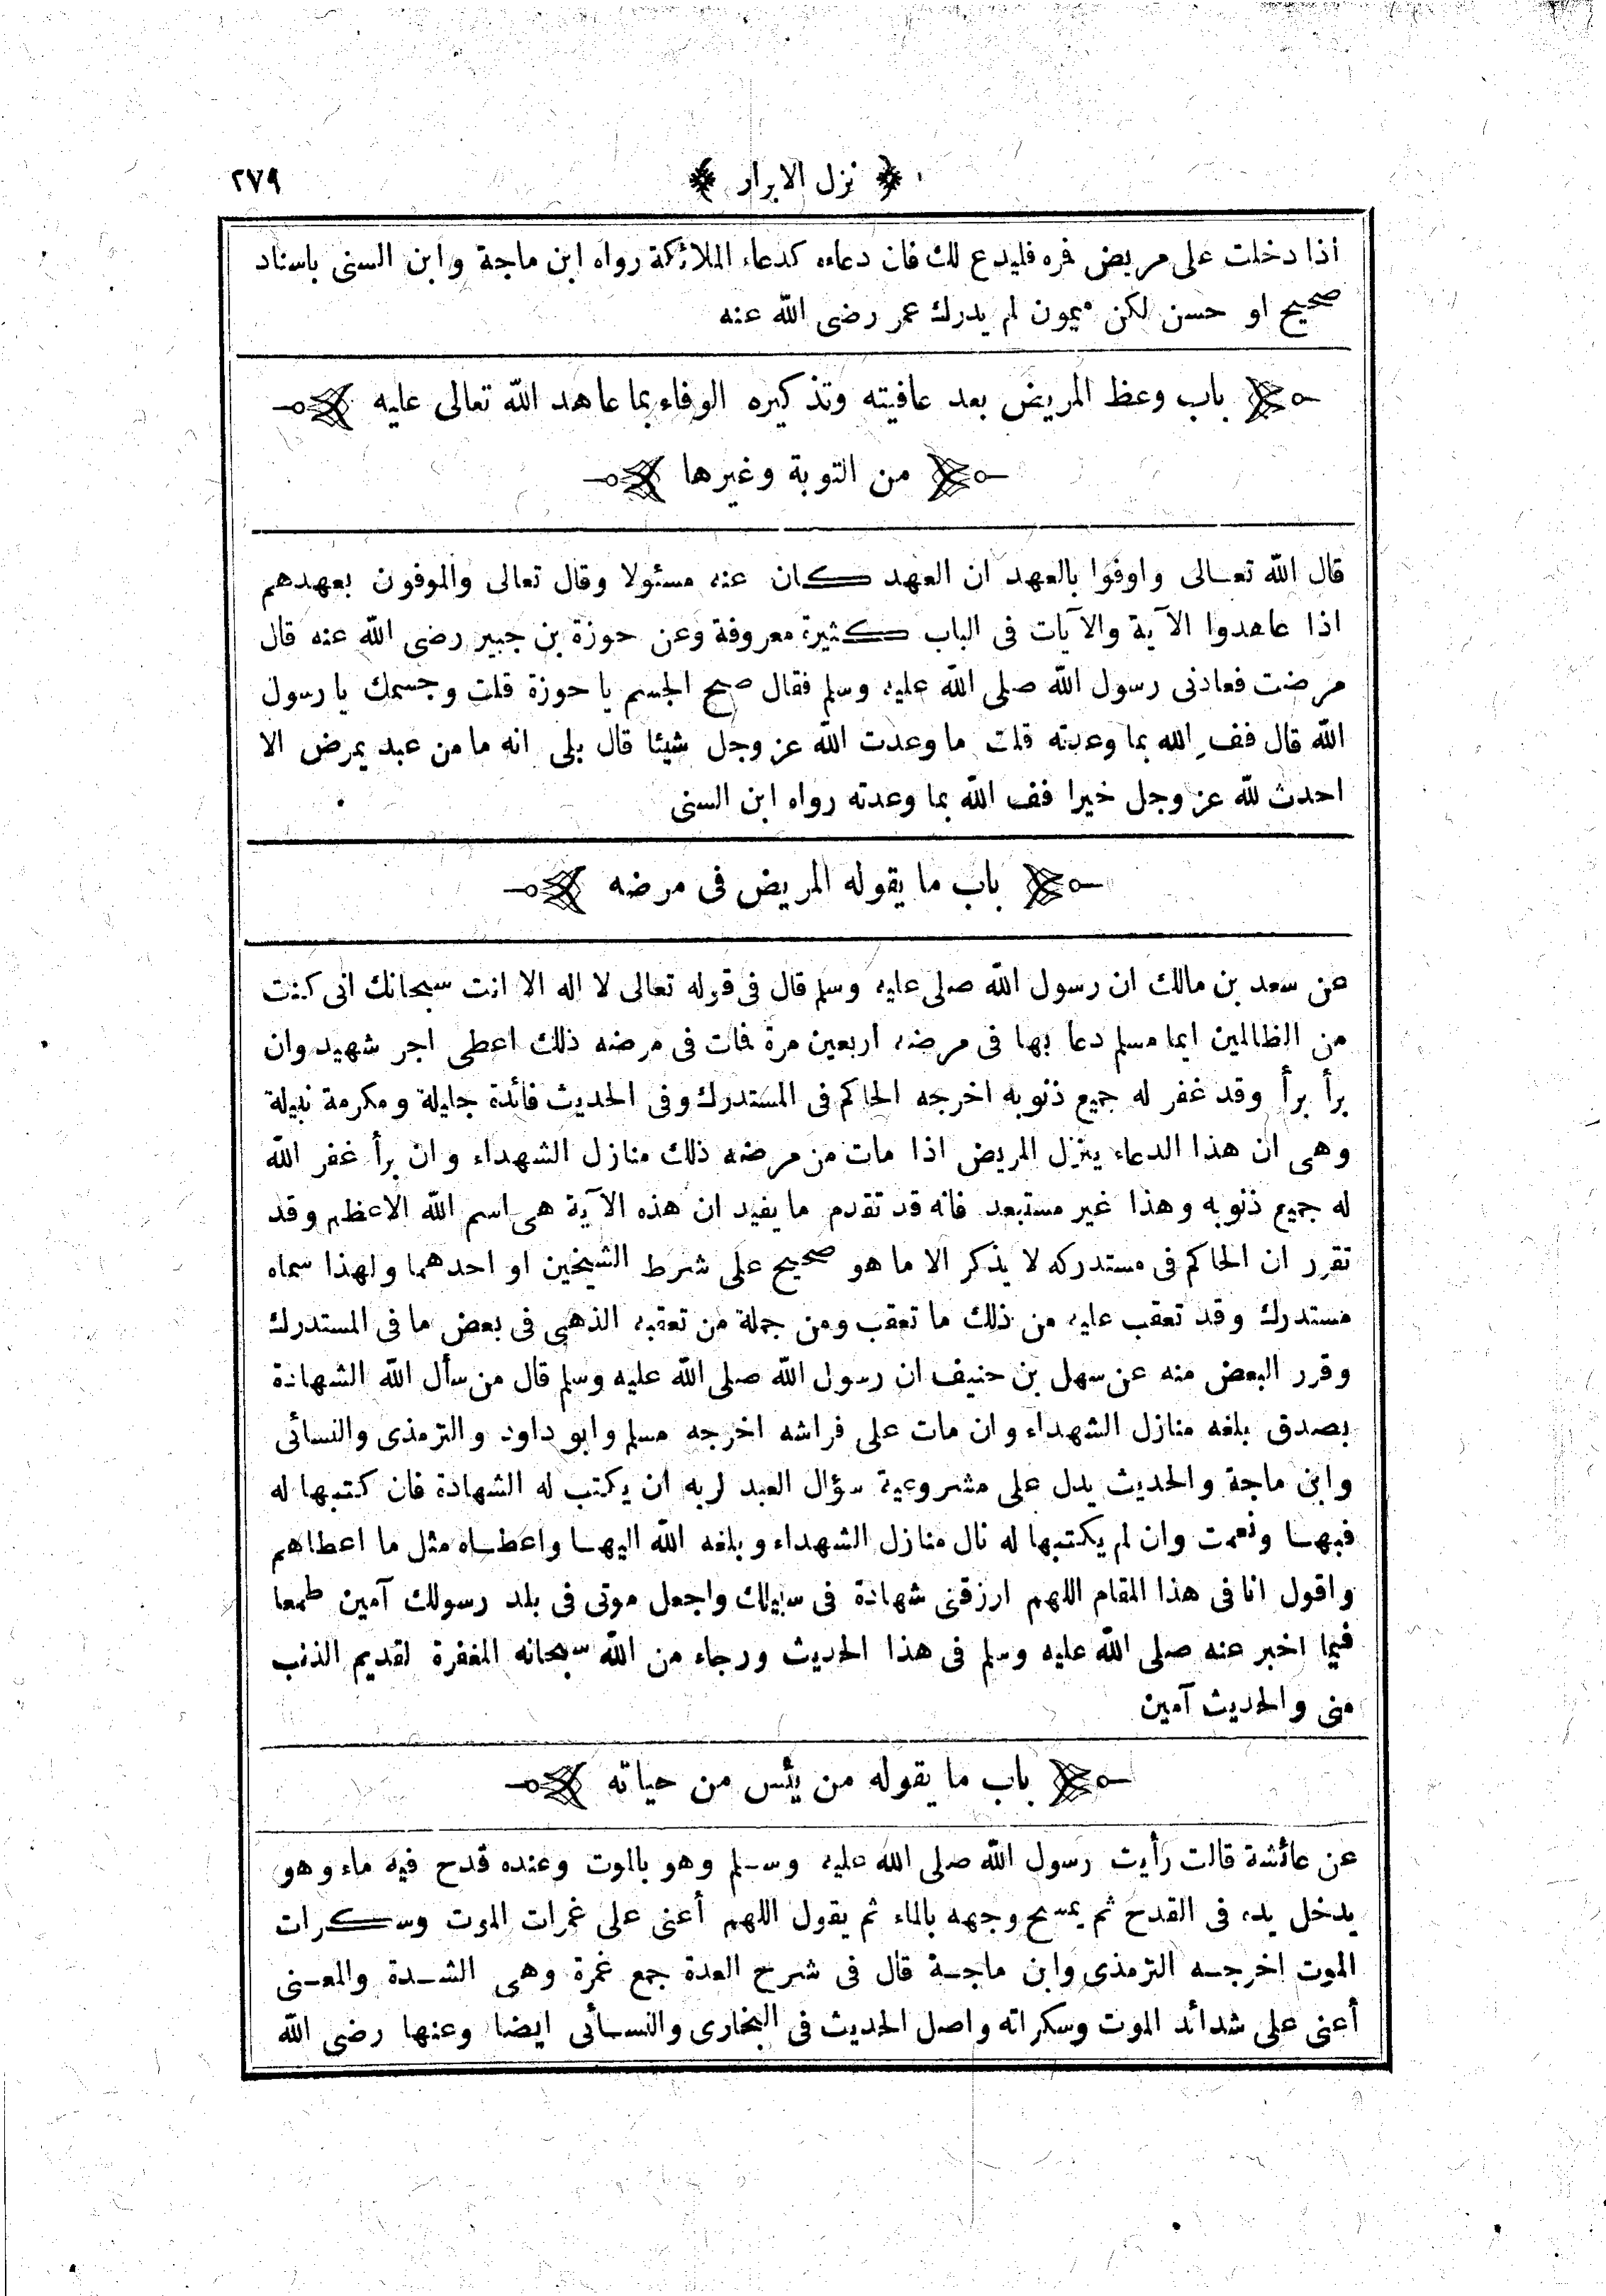 ﴿ نزل الابرار ﴾ ٢٧٩
اذا دخلت على مريض فره فليدع لك فان دعاءه كدعاء الملائكة رواه ابن ماجة وابن السنى باسناد
صحيح او حسن لكن ميمون لم يدرك عمر رضى الله عنه
باب وعظ المريض بعد عافيته وتذكيره الوفاء بما عاهد الله تعالى عليه
من التوبة وغيرها
قال الله تعالى واوفوا بالعهد ان العهد كان عنه مسئولا وقال تعالى والموفون بعهدهم
اذا عاهدوا الآية والآيات فى الباب كثيرة معروفة وعن حوزة بن جبير رضى الله عنه قال
مرضت فعادنى رسول الله صلى الله عليه وسلم فقال صح الجسم يا حوزة قلت وجسمك يا رسول
الله قال فف الله بما وعدته قلت ما وعدت الله عز وجل شيئا قال بلى انه ما من عبد يمرض الا
احدث لله عز وجل خيرا فف الله بما وعدته رواه ابن السنى
باب ما يقوله المريض فى مرضه
عن سعد بن مالك ان رسول الله صلى عليه وسلم قال فى قوله تعالى لا اله الا انت سبحانك انى كنت
من الظالمين ايما مسلم دعا بها فى مرضه اربعين مرة فمات فى مرضه ذلك اعطى اجر شهيد وان
برأ برأ وقد غفر له جميع ذنوبه اخرجه الحاكم فى المستدرك وفى الحديث فائدة جليلة ومكرمة نبيلة
وهى ان هذا الدعاء ينزل المريض اذا مات من مرضه ذلك منازل الشهداء وان برأ غفر الله
له جميع ذنوبه وهذا غير مستبعد فانه قد تقدم ما يفيد ان هذه الآية هى اسم الله الاعظم وقد
تقرر ان الحاكم فى مستدركه لا يذكر الا ما هو صحيح على شرط الشيخين او احدهما ولهذا سماه
مستدرك وقد تعقب عليه من ذلك ما تعقب ومن جملة من تعقبه الذهبى فى بعض ما فى المستدرك
وقرر البعض منه عن سهل بن حنيف ان رسول الله صلى الله عليه وسلم قال من سأل الله الشهادة
بصدق بلغه منازل الشهداء وان مات على فراشه اخرجه مسلم وابو داود والترمذى والنسائى
وابن ماجة والحديث يدل على مشروعية سؤال العبد لربه ان يكتب له الشهادة فان كتبها له
فبها ونعمت وان لم يكتبها له نال منازل الشهداء وبلغه الله اليها واعطاه مثل ما اعطاهم
واقول انا فى هذا المقام اللهم ارزقنى شهادة فى سبيلك واجعل موتى فى بلد رسولك آمين طمعا
فيما اخبر عنه صلى الله عليه وسلم فى هذا الحديث ورجاء من الله سبحانه المغفرة لقديم الذنب
منى والحديث آمين
باب ما يقوله من يئس من حياته
عن عائشة قالت رأيت رسول الله صلى الله عليه وسلم وهو بالموت وعنده قدح فيه ماء وهو
يدخل يده فى القدح ثم يمسح وجهه بالماء ثم يقول اللهم أعنى على غمرات الموت وسكرات
الموت اخرجه الترمذى وابن ماجة قال فى شرح العدة جمع غمرة وهى الشدة والمعنى
أعنى على شدائد الموت وسكراته واصل الحديث فى البخارى والنسائى ايضا وعنها رضى الله